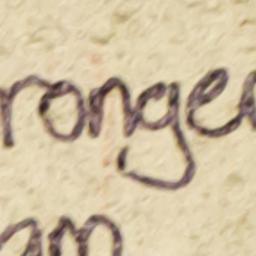 ronge
am